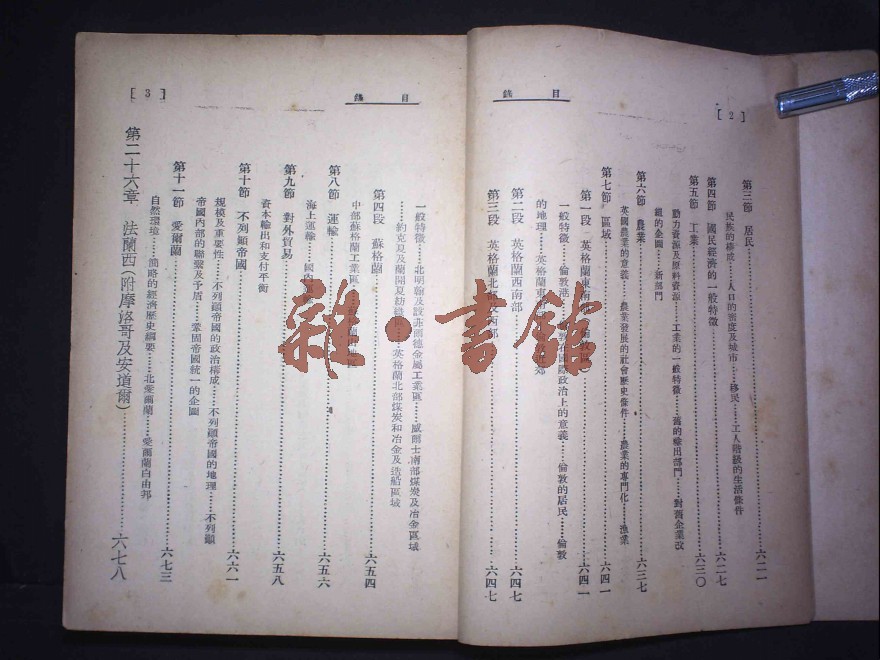 目錄
[2]
第三節 居民……六二一
民族的構成……人口的密度及城市……移民……工人階級的生活條件
第四節 國民經濟的一般特徵……六二七
第五節 工業……六三〇
動力資源及原料資源……工業的一般特徵……舊的輸出部門……對舊企業改
組的企圖……新部門
第六節 農業……六三七
英國農業的意義……農業發展的社會歷史條件……農業的專門化……漁業
第七節 區域……六四一
第一段 英格蘭東南部……六四一
一般特徵……倫敦港……在國際政治上的意義……倫敦的居民……倫敦
的地理……英格蘭東
第二段 英格蘭西南部……六四七
第三段 英格蘭北部及西部……六四七
目錄
[3]
一般特徵……北明翰及設菲爾德金屬工業區……威爾士南部煤炭及冶金區域
……約克夏及蘭開夏紡織……英格蘭北部煤炭和冶金及造船區域
第四段 蘇格蘭……六五四
中部蘇格蘭工業區
第八節 運輸……六五六
海上運輸……國內
第九節 對外貿易……六五八
資本輸出和支付平衡
第十節 不列顛帝國……六六一
規模及重要性……不列顛帝國的政治構成……不列顛帝國的地理……不列顛
帝國內部的聯繫及矛盾……鞏固帝國統一的企圖
第十一節 愛爾蘭……六七三
自然環境……簡略的經濟歷史綱要……北愛爾蘭……愛爾蘭自由邦
第二十六章 法蘭西(附摩洛哥及安道爾)……六七八
雜·書館